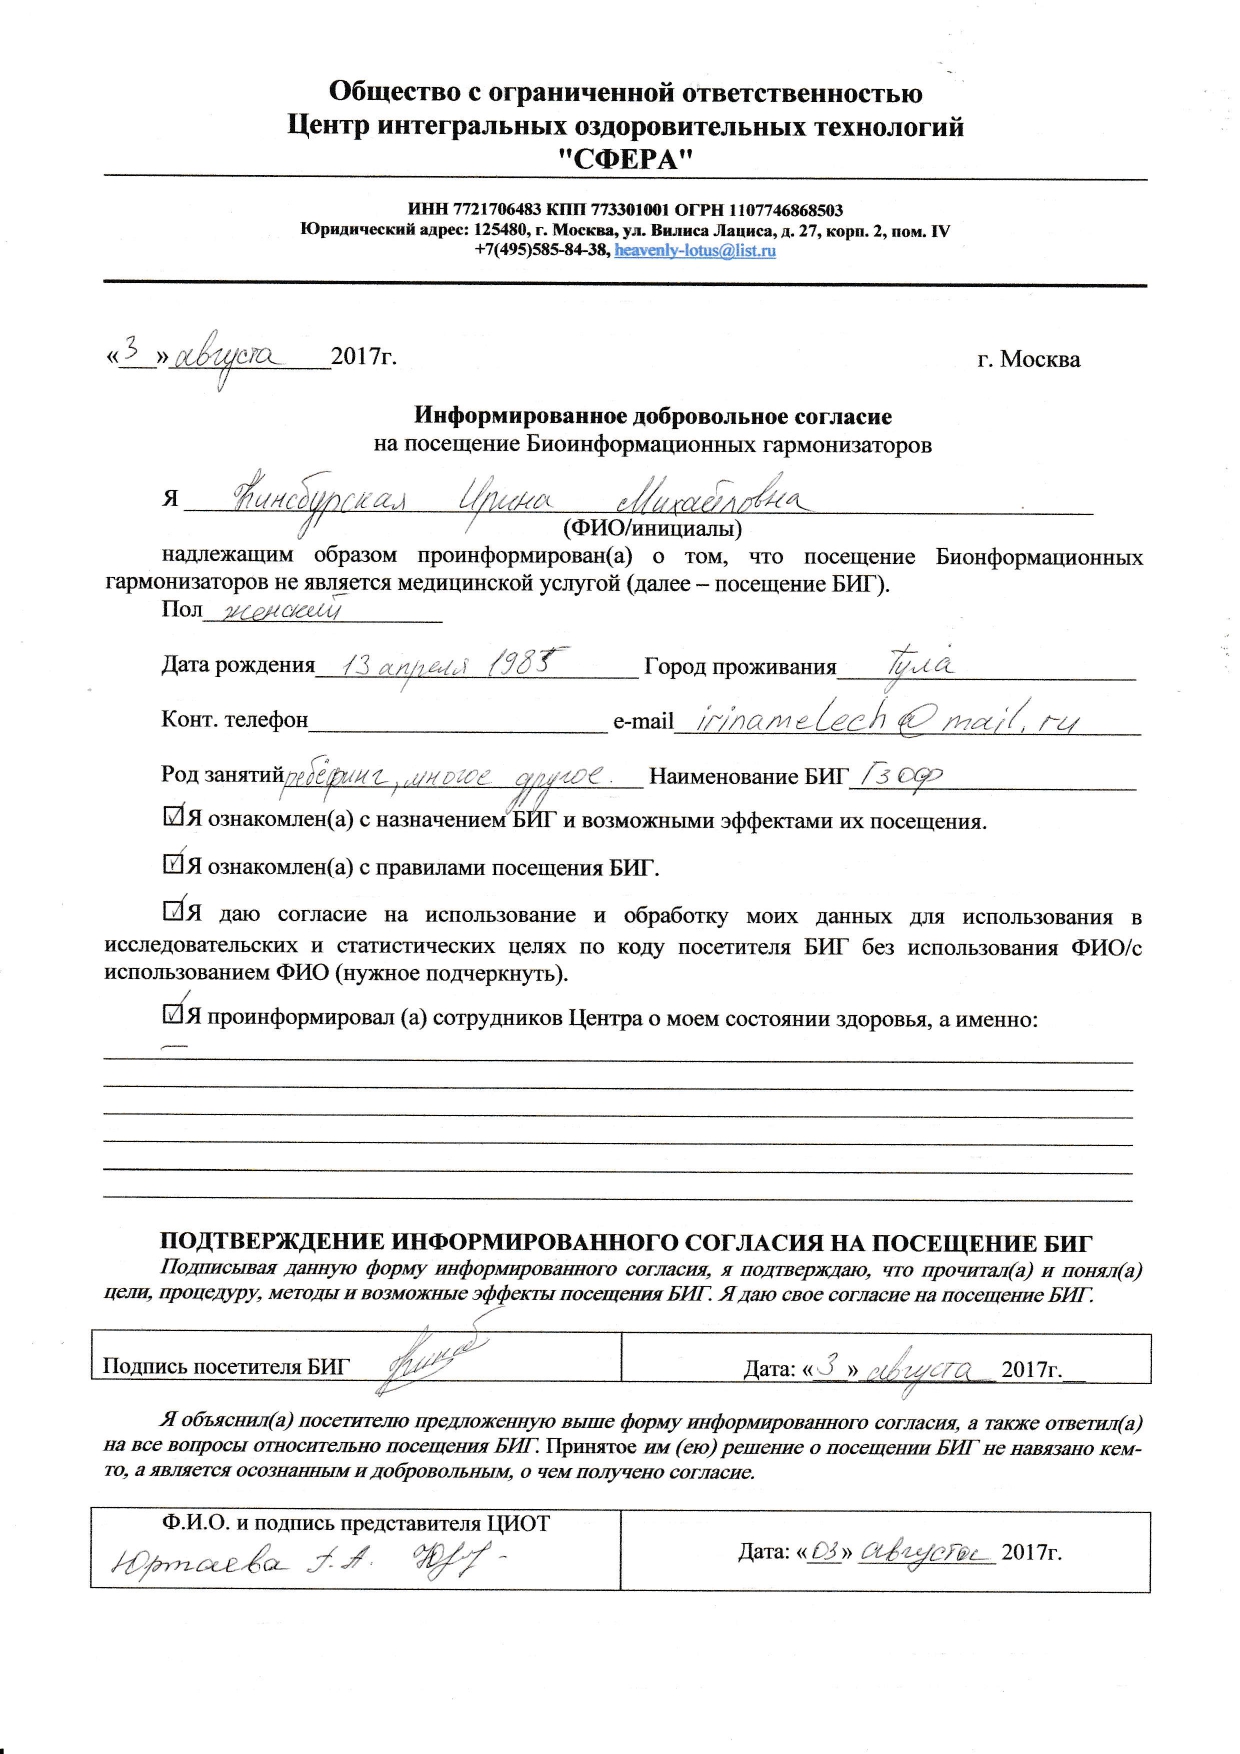 Общество с ограниченной ответственностью
Центр интегральных оздоровительных технологий
"СФЕРА"
ИНН 7721706483 КПП 773301001 ОГРН 1107746868503
Юридический адрес: 125480, г. Москва, ул. Вилиса Лациса, д. 27, корп. 2, пом. IV
+7(495)585-84-38, heavenly-lotus@list.ru
«3» августа 2017г. г. Москва
Информированное добровольное согласие
на посещение Биоинформационных гармонизаторов
Я Ирина Михайловна
(ФИО/инициалы)
надлежащим образом проинформирован(а) о том, что посещение Бионформационных
гармонизаторов не является медицинской услугой (далее – посещение БИГ).
Пол женский
Дата рождения 13 апреля 1985 Город проживания Тула
Конт. телефон e-mail irinamelech@mail.ru
Род занятий ребёфинг, многое другое. Наименование БИГ
Я ознакомлен(а) с назначением БИГ и возможными эффектами их посещения.
Я ознакомлен(а) с правилами посещения БИГ.
Я даю согласие на использование и обработку моих данных для использования в
исследовательских и статистических целях по коду посетителя БИГ без использования ФИО/с
использованием ФИО (нужное подчеркнуть).
Я проинформировал (а) сотрудников Центра о моем состоянии здоровья, а именно:
—
ПОДТВЕРЖДЕНИЕ ИНФОРМИРОВАННОГО СОГЛАСИЯ НА ПОСЕЩЕНИЕ БИГ
Подписывая данную форму информированного согласия, я подтверждаю, что прочитал(а) и понял(а)
цели, процедуру, методы и возможные эффекты посещения БИГ. Я даю свое согласие на посещение БИГ.
Подпись посетителя БИГ Дата: «3» августа 2017г.
Я объяснил(а) посетителю предложенную выше форму информированного согласия, а также ответил(а)
на все вопросы относительно посещения БИГ. Принятое им (ею) решение о посещении БИГ не навязано кем-
то, а является осознанным и добровольным, о чем получено согласие.
Ф.И.О. и подпись представителя ЦИОТ
Юртаева Г. А. Дата: «03» августа 2017г.